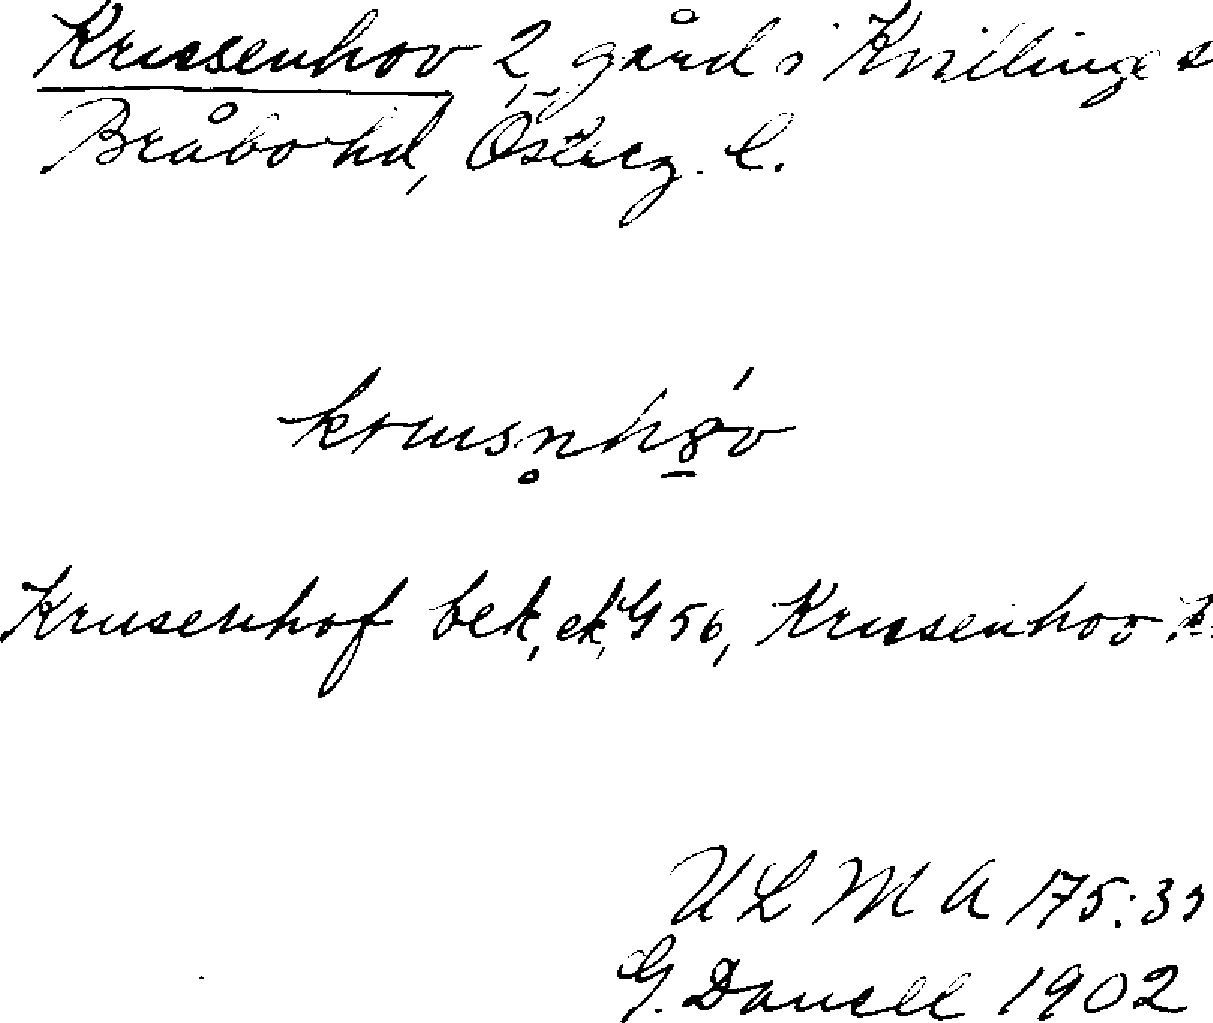 Krusenhov 2, gård i Kvillinge s
Bråbo hd, Österg. l.
krusn̥hǿ̱v
Krusenhof bek, ek, G 56, Krusenhov
ULMA 175:3
G. Danell 1902